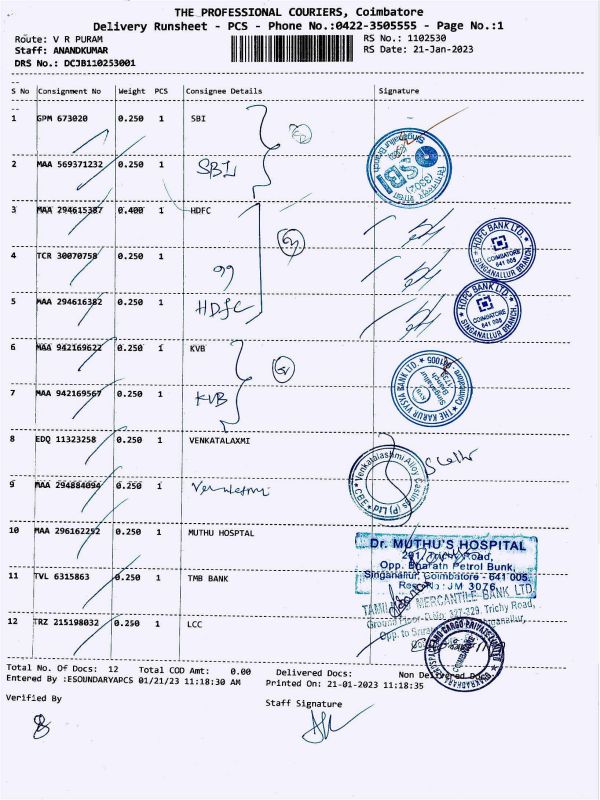 THE PROFESSIONAL COURIERS, Coimbatore
Delivery Runsheet - PCS - Phone No.:0422-3505555 - Page No.:1
Route: V R PURAM
RS No.: 1102530
Staff: ANANDKUMAR
RS Date: 21-Jan-2023
DRS No.: DCJB110253001
S No Consignment No Weight PCS Consignee Details Signature
1 GPM 673020 0.250 1 SBI
2 MAA 569371232 0.250 1 SBI
3 MAA 294615387 0.400 1 HDFC
4 TCR 30070758 0.250 1 99
5 MAA 294616382 0.250 1 HDFC
HDFC BANK LTD.
COIMBATORE
641 005
SINGANALLUR BRANCH
HDFC BANK LTD.
COIMBATORE
641 005
SINGANALLUR BRANCH
6 MAA 942169622 0.250 1 KVB
7 MAA 942169567 0.250 1 KVB
THE KARUR VYSYA BANK LTD.
Singanallur
Coimbatore - 641005
8 EDQ 11323258 0.250 1 VENKATALAXMI
9 MAA 294884094 0.250 1
Venkatalashmi Alloy Casings (P) Ltd
10 MAA 296162252 0.250 1 MUTHU HOSPTAL
Dr. MUTHU'S HOSPITAL
291, Trichy Road,
Opp. Bharath Petrol Bunk,
Singanallur, Coimbatore - 641 005.
Reg No: JM 3076
11 TVL 6315863 0.250 1 TMB BANK
TAMILNAD MERCANTILE BANK LTD
Ground Floor, D.No. 397-329, Trichy Road,
12 TRZ 215198032 0.250 1 LCC
Total No. Of Docs: 12 Total COD Amt: 0.00 Delivered Docs: Non Delivered Docs:
Entered By :ESOUNDARYAPCS 01/21/23 11:18:30 AM Printed On: 21-01-2023 11:18:35
Verified By
Staff Signature